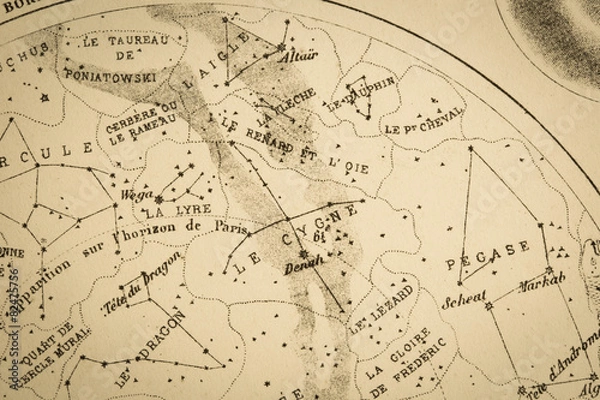 BOR
LE TAUREAU
DE
PONIATOWSKI
L'AIGLE
Altaïr
CERBERE OU
LE RAMEAU
LA FLECHE
LE DAUPHIN
LE Pt CHEVAL
LE RENARD ET L'OIE
RCULE
Wega
LA LYRE
sur l'horizon de Paris
LE CYGNE
61
Deneb
PEGASE
Tête du Dragon
Scheat
Markab
LE LÉZARD
QUART DE
CERCLE MURAL
LE DRAGON
LA GLOIRE
DE FREDERIC
Tête d'Androm
Alg
Adobe Stock | #82425756